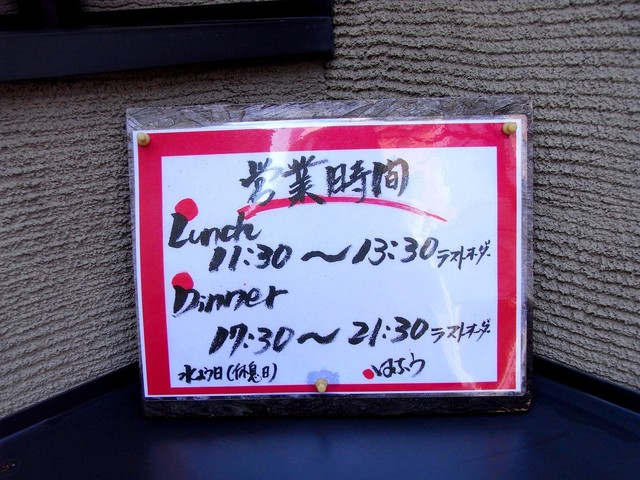 営業時間
Lunch
11:30〜13:30ラストオーダー
Dinner
17:30〜21:30ラストオーダー
水よう日(休息日)